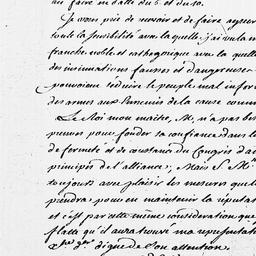 au faire en datte du 5. et du 10.
Je vous prie de recevoir et de faire agréer
toute la sensibilité avec laquelle j'ai vu la m
franche, noble et cathegorique avec laquelle
des insinuations fausses et dangereuses
pouvoient séduire le peuple mal infor
des armes aux Ennemis de la cause comm
Le Roi mon maitre, M. n'a pas bes
preuves pour fonder sa confiance dans l
de fermeté et de constance du Congrès d'a
principes de l'alliance; Mais S. M.
toujours avec plaisir les mesures que l
prendra pour en maintenir la réputat
et c'est par cette même considération que
flatte qu'il aura trouvé ma representat
digne de son attention.